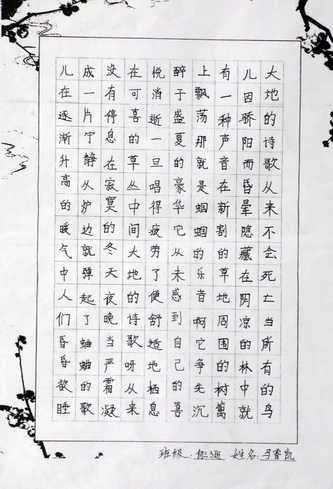 大地的诗歌从来不会死亡当所有的鸟
儿因骄阳而昏晕隐藏在阴凉的林中就
有一种声音在新割的草地周围的树篱
上飘荡那就是蝈蝈的乐音啊它争先沉
醉于盛夏的豪华它从未感到自己的喜
悦消逝一旦唱得疲劳了便舒适地栖息
在可喜的草丛中间大地的诗歌呀从来
没有停息在寂寞的冬天夜晚当严霜凝
成一片宁静从炉边就弹起了蛐蛐的歌
儿在逐渐升高的暖气中人们昏昏欲睡
班级: 姓名: